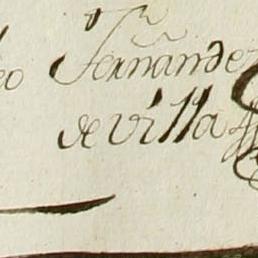 eo Fernánde
de villa